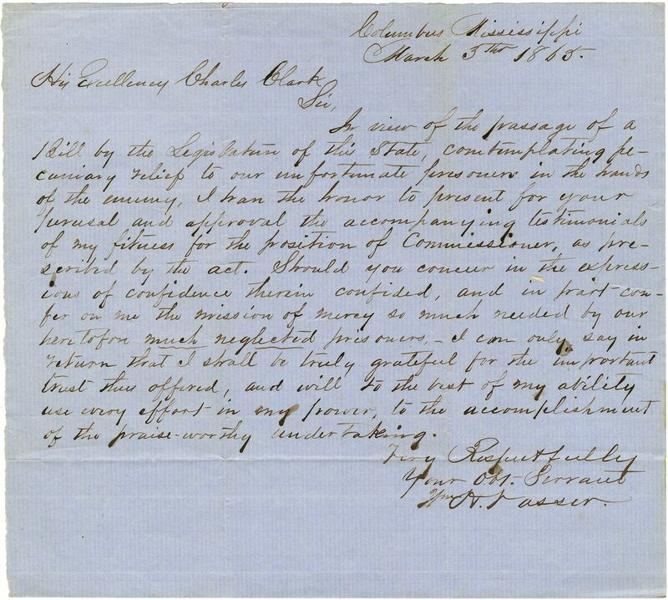 Columbus Mississippi
March 5th 1865.
His Excellency Charles Clark
Sir,
In view of the passage of a
Bill by the Legislature of this State, comtemplating pe-
cuniary relief to our unfortunate prisoners in the hands
of the enemy, I have the honor to present for your
perusal and approval the accompanying testimonials
of my fitness for the position of Commissioner, as pre-
scribed by the act. Should you concur in the express-
ions of confidence therein confided, and in part con-
fer on me the mission of mercy so much needed by our
heretofore much neglected prisoners,- I can only say in
return that I shall be truly grateful for the important
trust thus offered, and will to the best of my ability
use every effort in my power, to the accomplishment
of the praise-worthy undertaking.
Very Respectfully
Your Obt. Servant
Wm H.